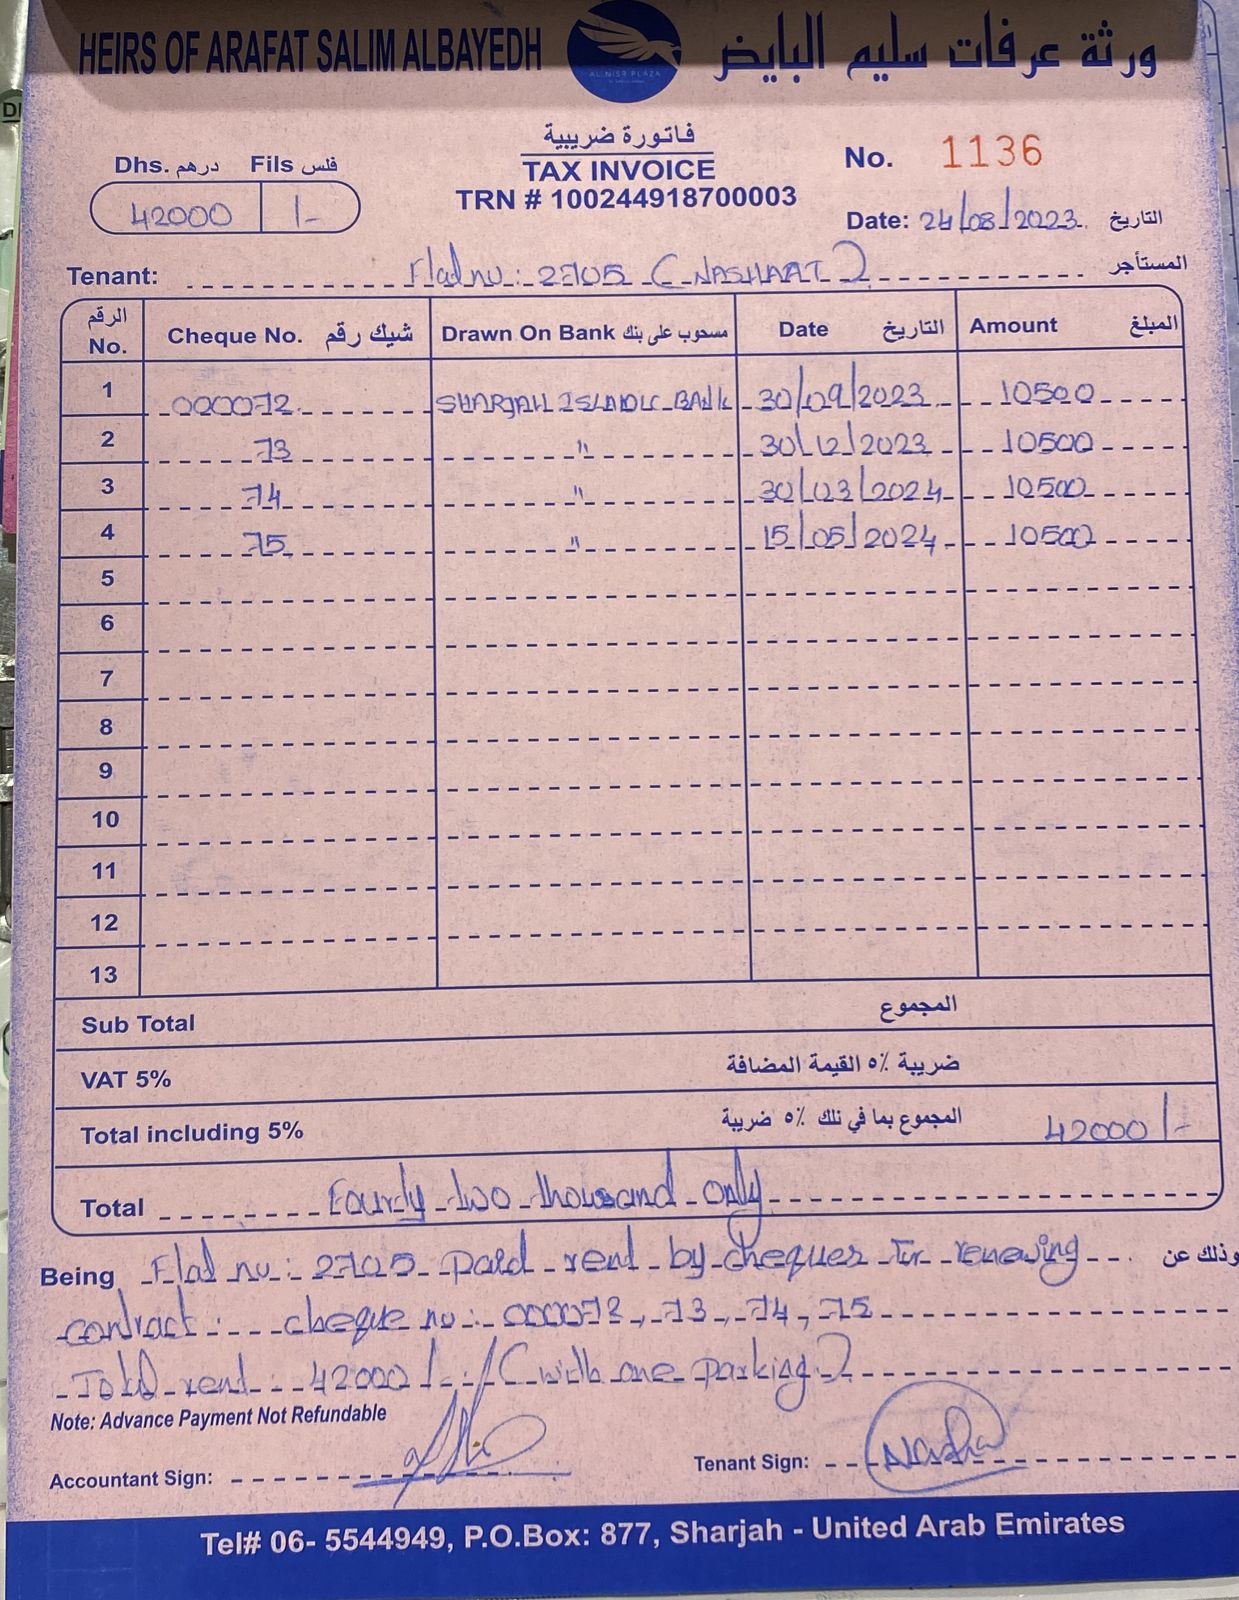 HEIRS OF ARAFAT SALIM ALBAYEDH
ورثة عرفات سليم البايض
AL NISR PLAZA
فاتورة ضريبية
TAX INVOICE
TRN # 100244918700003
Dhs. درهم Fils فلس
42000 /-
No. 1136
Date: 24/08/2023 التاريخ
Tenant: Flat no: 2705 (NASHAAT) المستأجر
الرقم No. Cheque No. شيك رقم Drawn On Bank مسحوب على بنك Date التاريخ Amount المبلغ
1 000072 SHARJAH ISLAMIC BANK 30/09/2023 10500
2 73 " 30/12/2023 10500
3 74 " 30/03/2024 10500
4 75 " 15/05/2024 10500
5
6
7
8
9
10
11
12
13
Sub Total المجموع
VAT 5% ضريبة ٥٪ القيمة المضافة
Total including 5% المجموع بما في نلك ٥٪ ضريبة 42000/-
Total Fourty two thousand only
Being Flat no: 2705 paid rent by cheques for renewing وذلك عن
contract: cheque no: 000072, 73, 74, 75
Total rent: 42000/- (with one parking)
Note: Advance Payment Not Refundable
Accountant Sign:
Tenant Sign:
Tel# 06- 5544949, P.O.Box: 877, Sharjah - United Arab Emirates